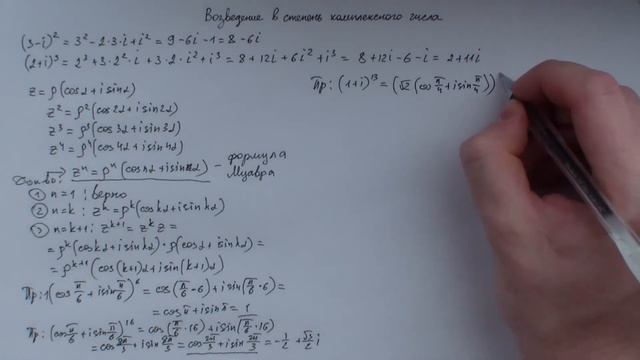 Возведение в степень комплексного числа
(3-i)² = 3² - 2·3·i + i² = 9 - 6i - 1 = 8 - 6i
(2+i)³ = 2³ + 3·2²·i + 3·2·i² + i³ = 8 + 12i + 6i² + i³ = 8 + 12i - 6 - i = 2 + 11i
z = ρ(cosα + isinα)
z² = ρ²(cos2α + isin2α)
z³ = ρ³(cos3α + isin3α)
z⁴ = ρ⁴(cos4α + isin4α)
zⁿ = ρⁿ(cosnα + isinnα) - формула Муавра
Док-во:
① n=1 : верно
② n=k : zᵏ = ρᵏ(coskα + isinkα)
③ n=k+1 : zᵏ⁺¹ = zᵏ z =
= ρᵏ(coskα + isinkα)·ρ(cosα + isinα) =
= ρᵏ⁺¹(cos(k+1)α + isin(k+1)α)
Пр: 1(cos π/6 + isin π/6)⁶ = cos(π/6·6) + isin(π/6·6) =
= cosπ + isinπ = 1
Пр: (cos π/6 + isin π/6)¹⁶ = cos(π/6·16) + isin(π/6·16)
= cos 8π/3 + isin 8π/3 = cos 2π/3 + isin 2π/3 = -1/2 + √3/2 i
Пр: (1+i)¹³ = (√2(cos π/4 + isin π/4))